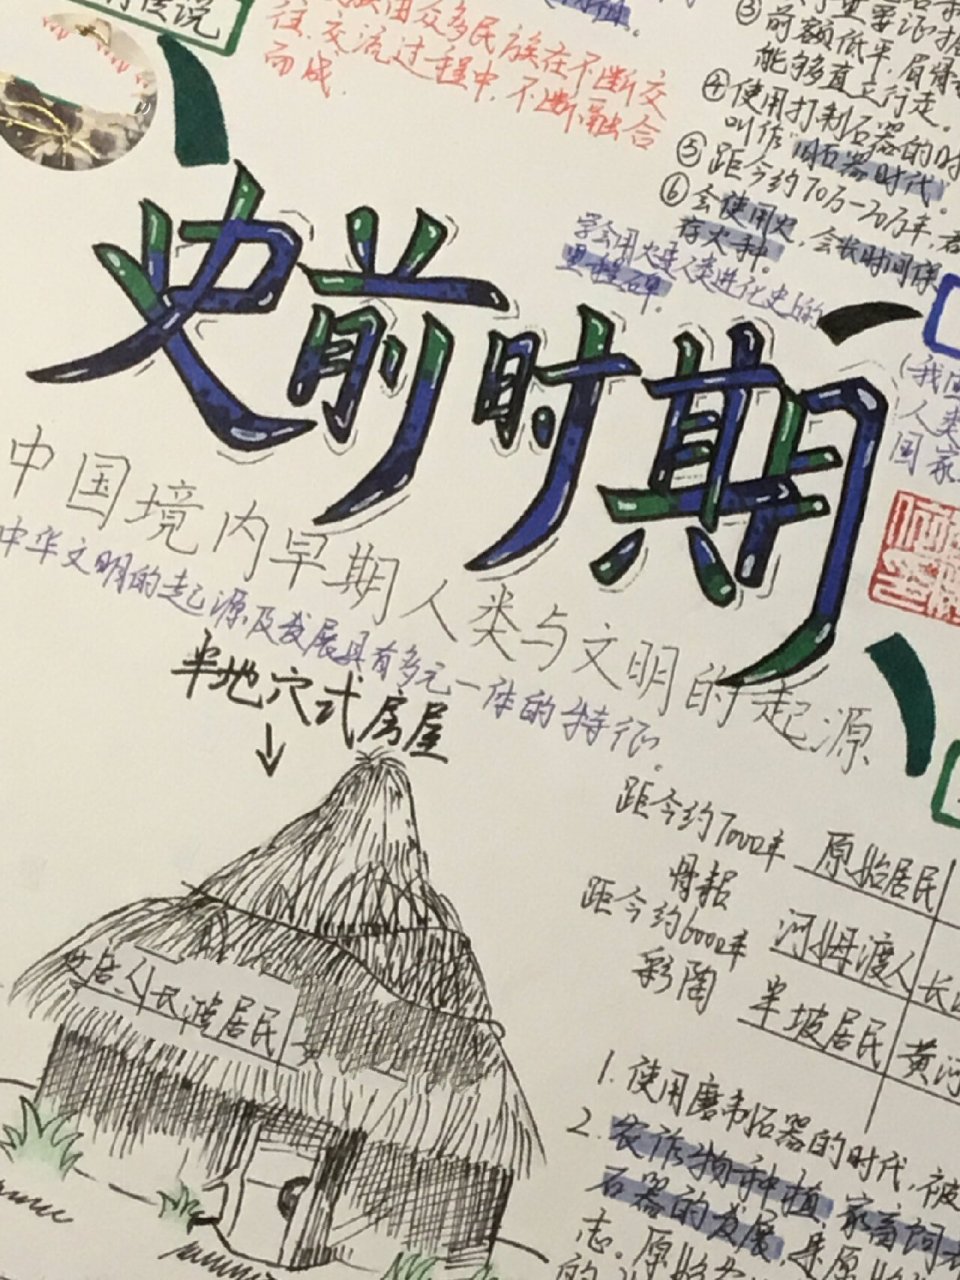 传说
众多民族在不断交
往、交流过程中，不断融合
而成．
③
前额低平，眉骨
能够直立行走。
④使用打制石器的时
叫作"旧石器时代"。
⑤距今约70万—20万年，
⑥会使用火，会长时间保
存火种。
学会用火是人类进化史上的
里程碑。
(我国
人类
国家
史前时期
中国境内早期人类与文明的起源
中华文明的起源及发展具有多元一体的特征。
半地穴式房屋
居民
距今约7000年
骨耜
距今约6000年
彩陶
原始居民
河姆渡人
长
半坡居民
黄河
1.使用磨制石器的时代，被
2.农作物种植、家畜饲
石器的发展，是原
志。原始
的